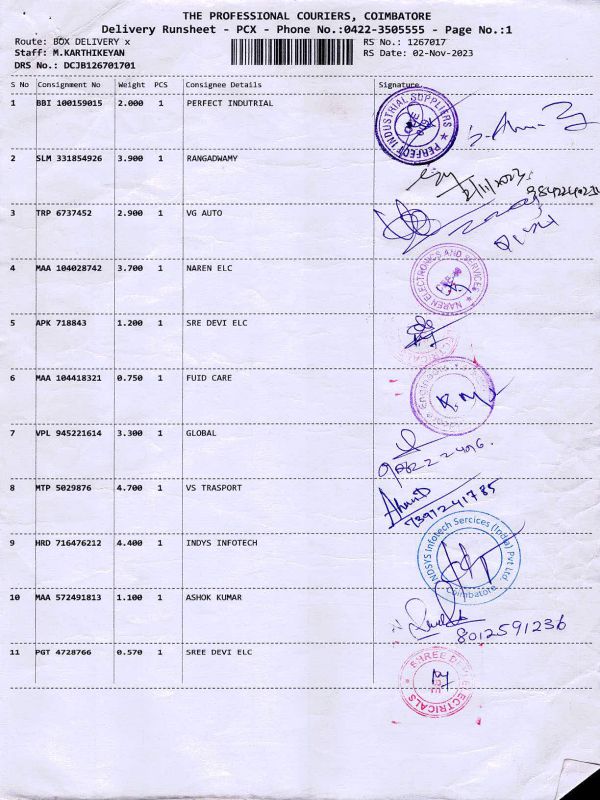 THE PROFESSIONAL COURIERS, COIMBATORE
Delivery Runsheet - PCX - Phone No.:0422-3505555 - Page No.:1
Route: BOX DELIVERY x RS No.: 1267017
Staff: M.KARTHIKEYAN RS Date: 02-Nov-2023
DRS No.: DCJB126701701
S No Consignment No Weight PCS Consignee Details Signature
1 BBI 100159015 2.000 1 PERFECT INDUTRIAL
PERFECT INDUSTRIAL SUPPLIERS
2 SLM 331854926 3.900 1 RANGADWAMY
2/11/2023
3 TRP 6737452 2.900 1 VG AUTO
4 MAA 104028742 3.700 1 NAREN ELC
NAREN ELECTRONICS AND SERVICES
5 APK 718843 1.200 1 SRE DEVI ELC
6 MAA 104418321 0.750 1 FUID CARE
7 VPL 945221614 3.300 1 GLOBAL
8 MTP 5029876 4.700 1 VS TRASPORT
7391241785
9 HRD 716476212 4.400 1 INDYS INFOTECH
INDSYS Infotech Sercices (India) Pvt Ltd.
Coimbatore
10 MAA 572491813 1.100 1 ASHOK KUMAR
8012591236
11 PGT 4728766 0.570 1 SREE DEVI ELC
SHREE DEVI ELECTRICALS